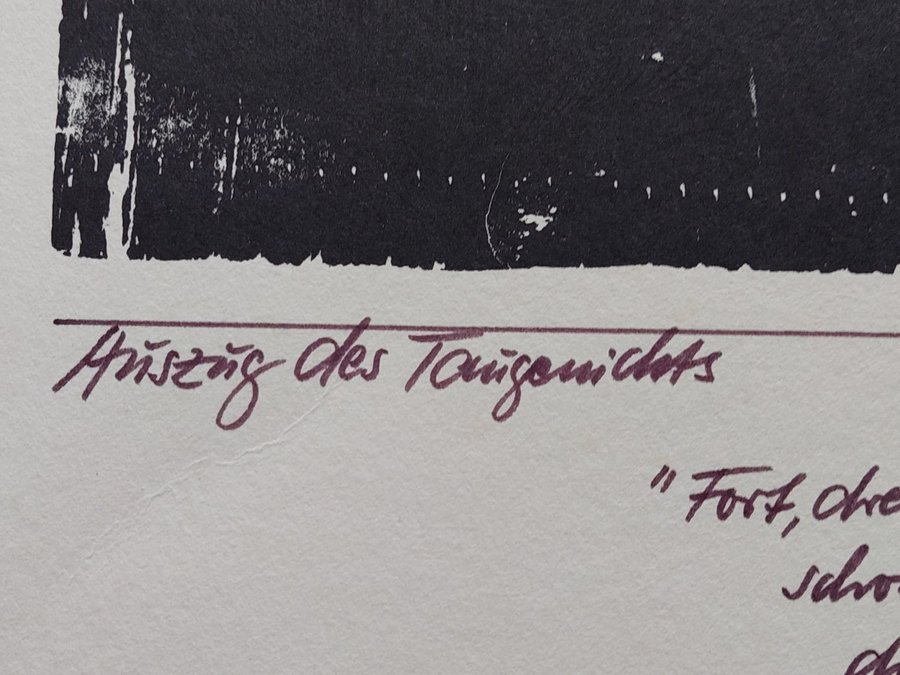 Auszug des Taugenichts
"Fort, dre
scho
d